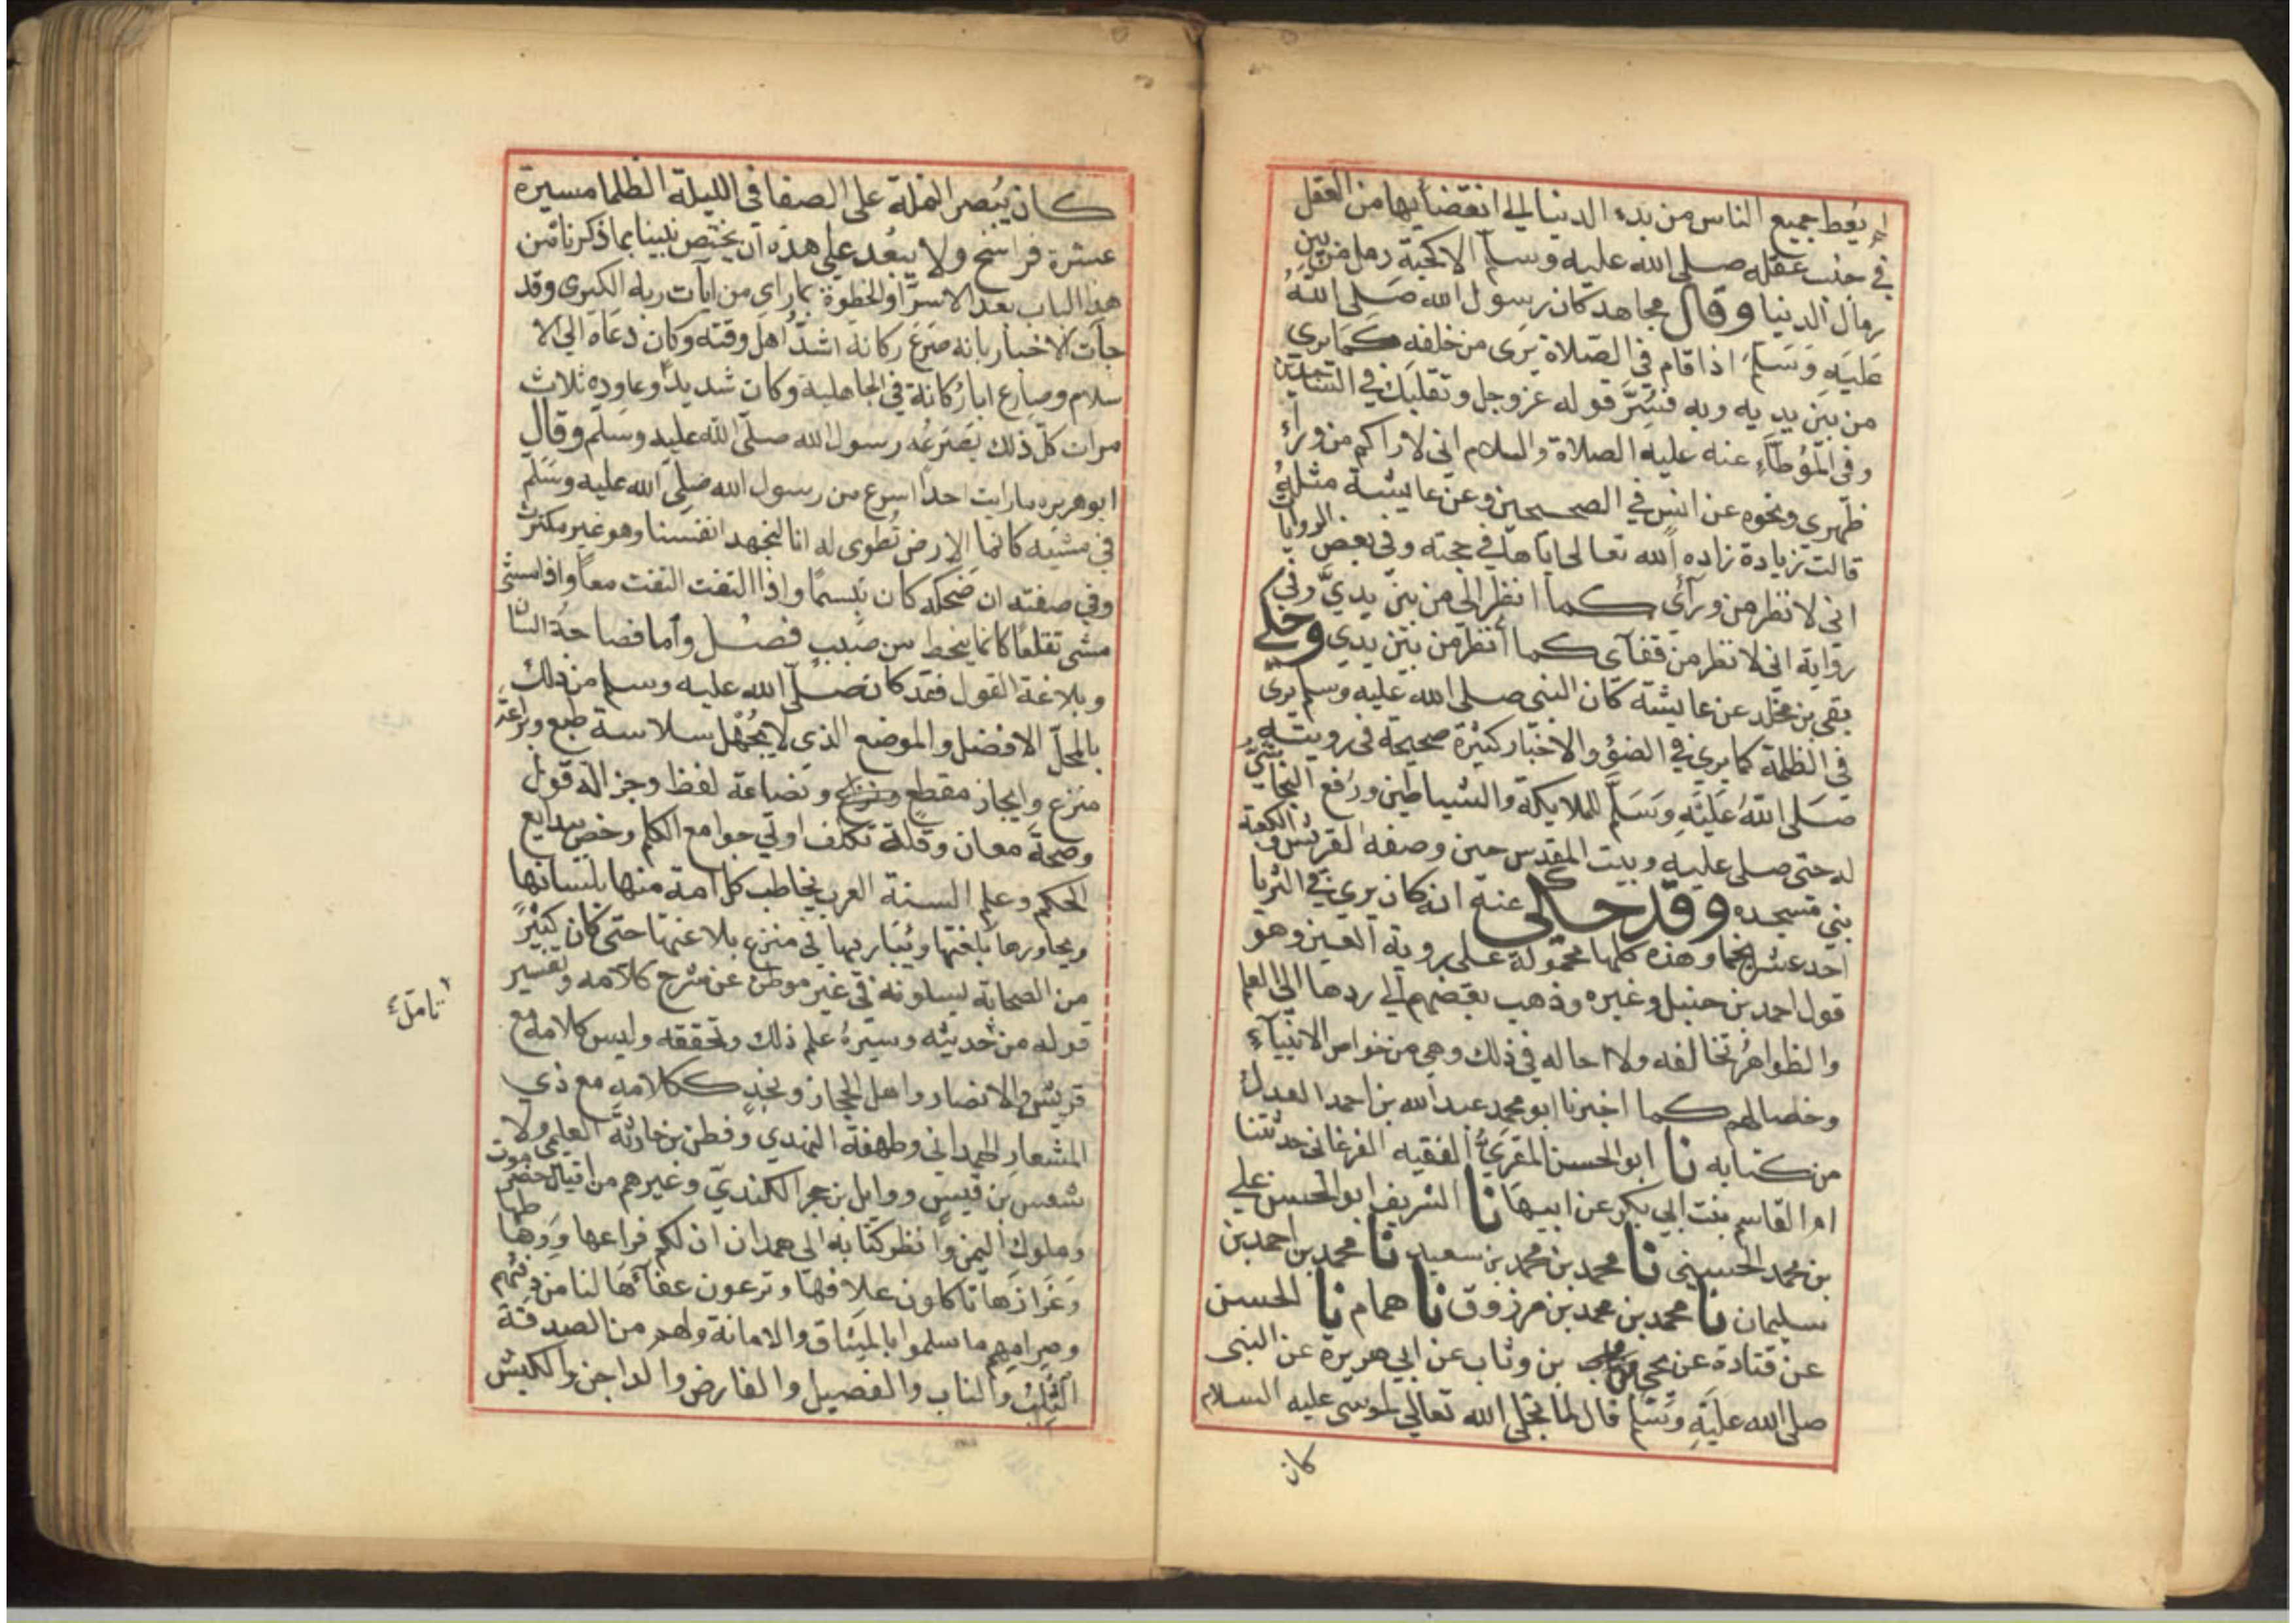 لم يعط جميع الناس من بدء الدنيا الي انقضايها من العقل
في جنب عقله صلى الله عليه وسلم الا كحبة رمل من بين
رمال الدنيا وقال مجاهد كان رسول الله صلى الله
عليه وسلم اذا قام في الصلاة يرى من خلفه كما يرى
من بين يديه وبه فسر قوله عز وجل وتقلبك في الساجدين
وفي الموطاء عنه عليه الصلاة والسلام اني لاراكم من وراء
ظهري ونحوه عن انس في الصحيحين وعن عايشة مثله
قالت زيادة زاده الله تعالى اياها في حجته وفي بعض الروايا
اني لا نظر من ورآي كما انظر الى من بين يدي وفي
رواية اني لا نظر من قفآي كما انظر من بين يدي وحكى
بقي بن مخلد عن عايشة كان النبي صلى الله عليه وسلم يرى
في الظلمة كما يرى في الضؤ والاخبار كثيرة صحيحة في رويته
صلى الله عليه وسلم للملايكة والشياطين ورفع النجاشي
له حتى صلى عليه وبيت المقدس حين وصفه لقريش والكعبة
بني مسجده وقد حكى عنه انه كان يرى في الثريا
احد عشر نجما وهذه كلها محمولة على روية العين وهو
قول احمد بن حنبل وغيره وذهب بعضهم الي ردها الى العلم
والظواهر تخالفه ولا احاله في ذلك وهي من خواص الانبيآء
وخصالهم كما اخبرنا ابو محمد عبد الله بن احمد العدل
من كتابه نا ابو الحسن المقري الفقيه الفرغاني حدثتنا
ام القاسم بنت ابي بكر عن ابيها نا الشريف ابو الحسن علي
بن محمد الحسيني نا محمد بن محمد بن سعيد نا محمد بن احمد بن
سليمان نا محمد بن محمد بن مرزوق نا همام نا الحسن
عن قتادة عن يحيى بن وثاب عن ابي هريرة عن النبي
صلى الله عليه وسلم قال لما تجلى الله تعالي لموسى عليه السلام
كان
كان يبصر النملة على الصفا في الليلة الظلما مسيرة
عشرة فراسخ ولا يبعد على هذه ان يختص نبينا بما ذكرناه من
هذا الباب بعد الاسرا والحظوة بما راى من ايآت ربه الكبرى وقد
جآت الاخبار بانه صرع ركانة اشد اهل وقته وكان دعاه الى الا
سلام وصارع ابا ركانة في الجاهلية وكان شديدا وعاوده ثلاث
مرات كل ذلك يصرعه رسول الله صلى الله عليه وسلم وقال
ابو هريره ما رايت احدا اسرع من رسول الله صلى الله عليه وسلم
في مشيه كانما الارض تطوى له انا لنجهد انفسنا وهو غير مكترث
وفي صفته ان ضحكه كان تبسما واذا التفت التفت معا واذا مشى
مشى تقلعا كانما ينحط من صبب فصل وأما فصاحة اللسان
وبلاغة القول فقد كان صلى الله عليه وسلم من ذلك
بالمحل الافضل والموضع الذي لا يجهل سلاسة طبع وبراعة
منزع وايجاز مقطع ونصاعة لفظ وجزالة قول
وصحة معان وقلة تكلف اوتي جوامع الكلم وخص ببدايع
الحكم وعلم السنة العرب يخاطب كل امة منها بلسانها
ويحاورها بلغتها ويباريها في منزع بلاغتها حتى كان كثير
من الصحابة يسلونه في غير موطن عن شرح كلامه وتفسير
قوله من حديثه وسيره علم ذلك وتحققه وليس كلامه مع
قريش والانصار واهل الحجاز ونجد ككلامه مع ذي
المشعار الهمداني وطهفة النهدي وقطن بن حارثة العليمي ولا
شعس بن قيس ووايل بن حجر الكندي وغيرهم من اقيال حضر موت
وملوك اليمن وانظر كتابه الى همدان ان لكم فراعها ووهاطها
وعزازها تاكلون علافها وترعون عفآءها لنا من دفئهم
وصرامهم ما سلموا بالميثاق والامانة ولهم من الصدقة
الثلب والناب والفصيل والفارض والداجن والكبش
تامل